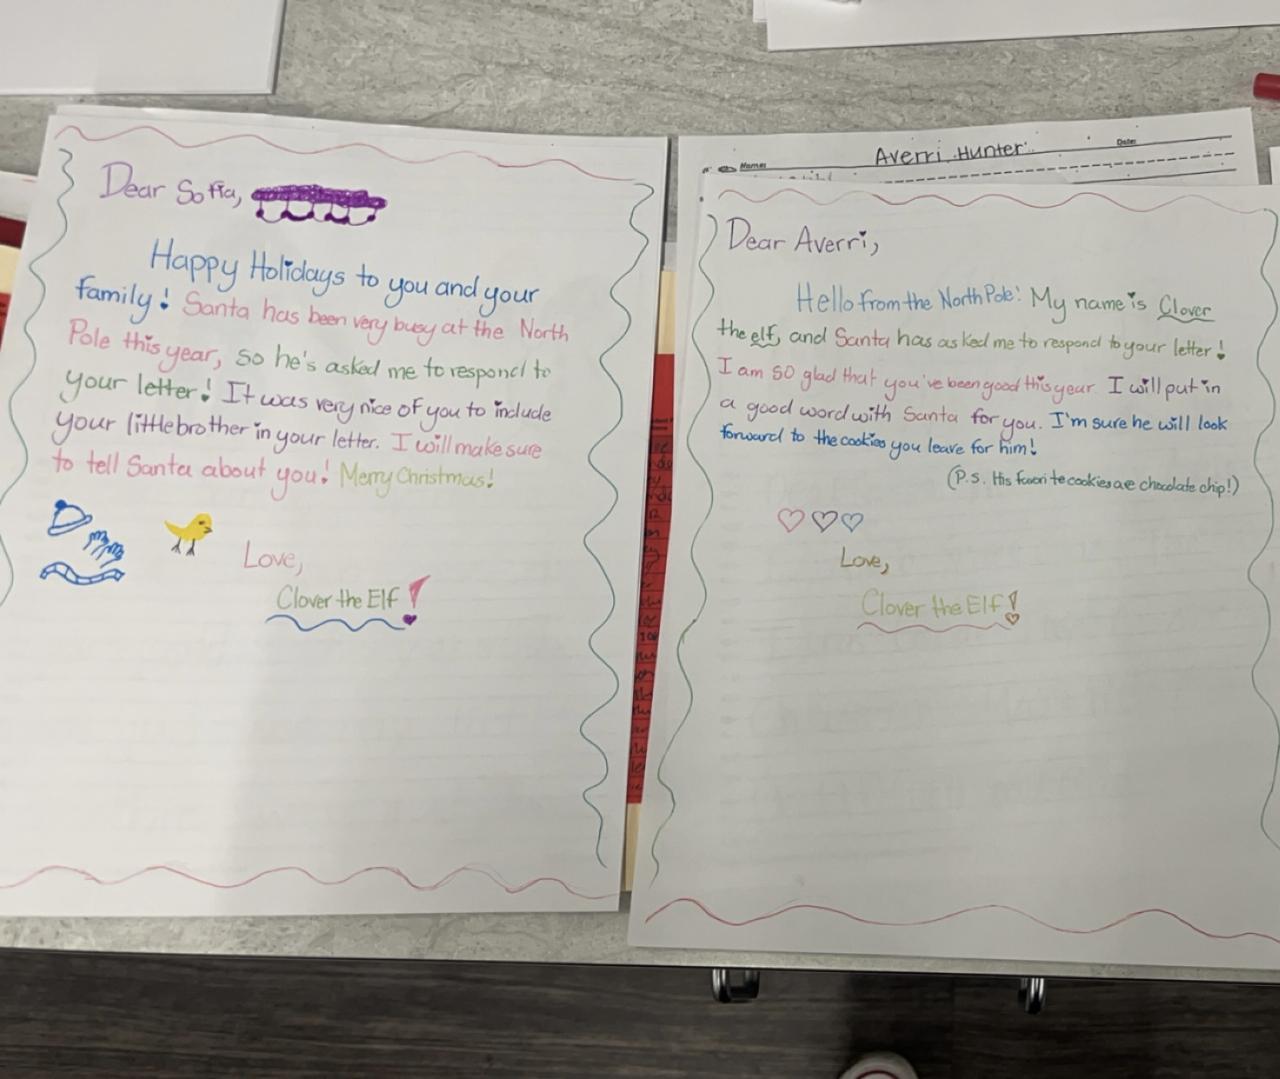 Dear Sofia,
Happy Holidays to you and your
family! Santa has been very busy at the North
Pole this year, so he's asked me to respond to
your letter! It was very nice of you to include
your little brother in your letter. I will make sure
to tell Santa about you! Merry Christmas!
Love,
Clover the Elf!
Name:
Averri Hunter
Date:
Dear Averri,
Hello from the North Pole! My name is Clover
the elf, and Santa has asked me to respond to your letter!
I am SO glad that you've been good this year. I will put in
a good word with Santa for you. I'm sure he will look
forward to the cookies you leave for him!
(P.S. His favorite cookies are chocolate chip!)
Love,
Clover the Elf!